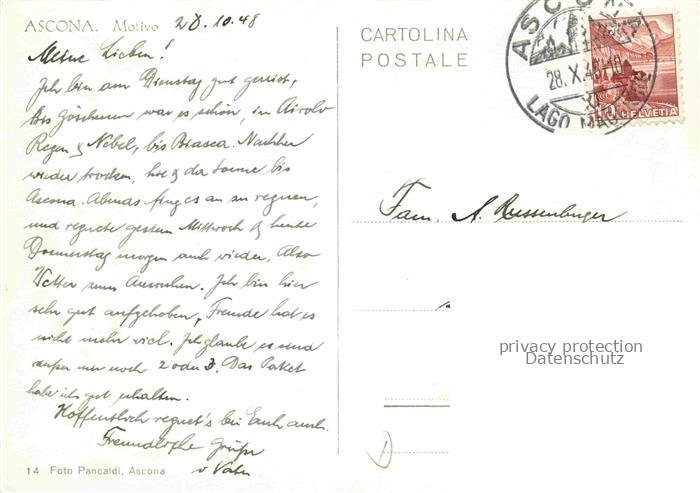 ASCONA. Motivo 28.10.48
Meine Lieben!
Ich bin am Dienstag gut gereist,
bis Göschenen war es schön, in Airolo
Regen & Nebel, bis Biasca. Nachher
wieder trocken, hie & da Sonne bis
Ascona. Abends fing es an zu regnen,
und regnete gestern Mittwoch & heute
Donnerstag morgen auch wieder. Also
Wetter zum Ausruhen. Ich bin hier
sehr gut aufgehoben, Fremde hat es
nicht mehr viel. Ich glaube es sind
außer mir noch 2 oder 3. Das Paket
habe ich gut erhalten.
Hoffentlich regnet's bei Euch auch.
Freundliche Grüße
v Vater
14 Foto Pancaldi, Ascona
CARTOLINA
POSTALE
ASCONA
28.X.48-10
LAGO MAGGIORE
HELVETIA
Fam. A. Russenberger
privacy protection
Datenschutz